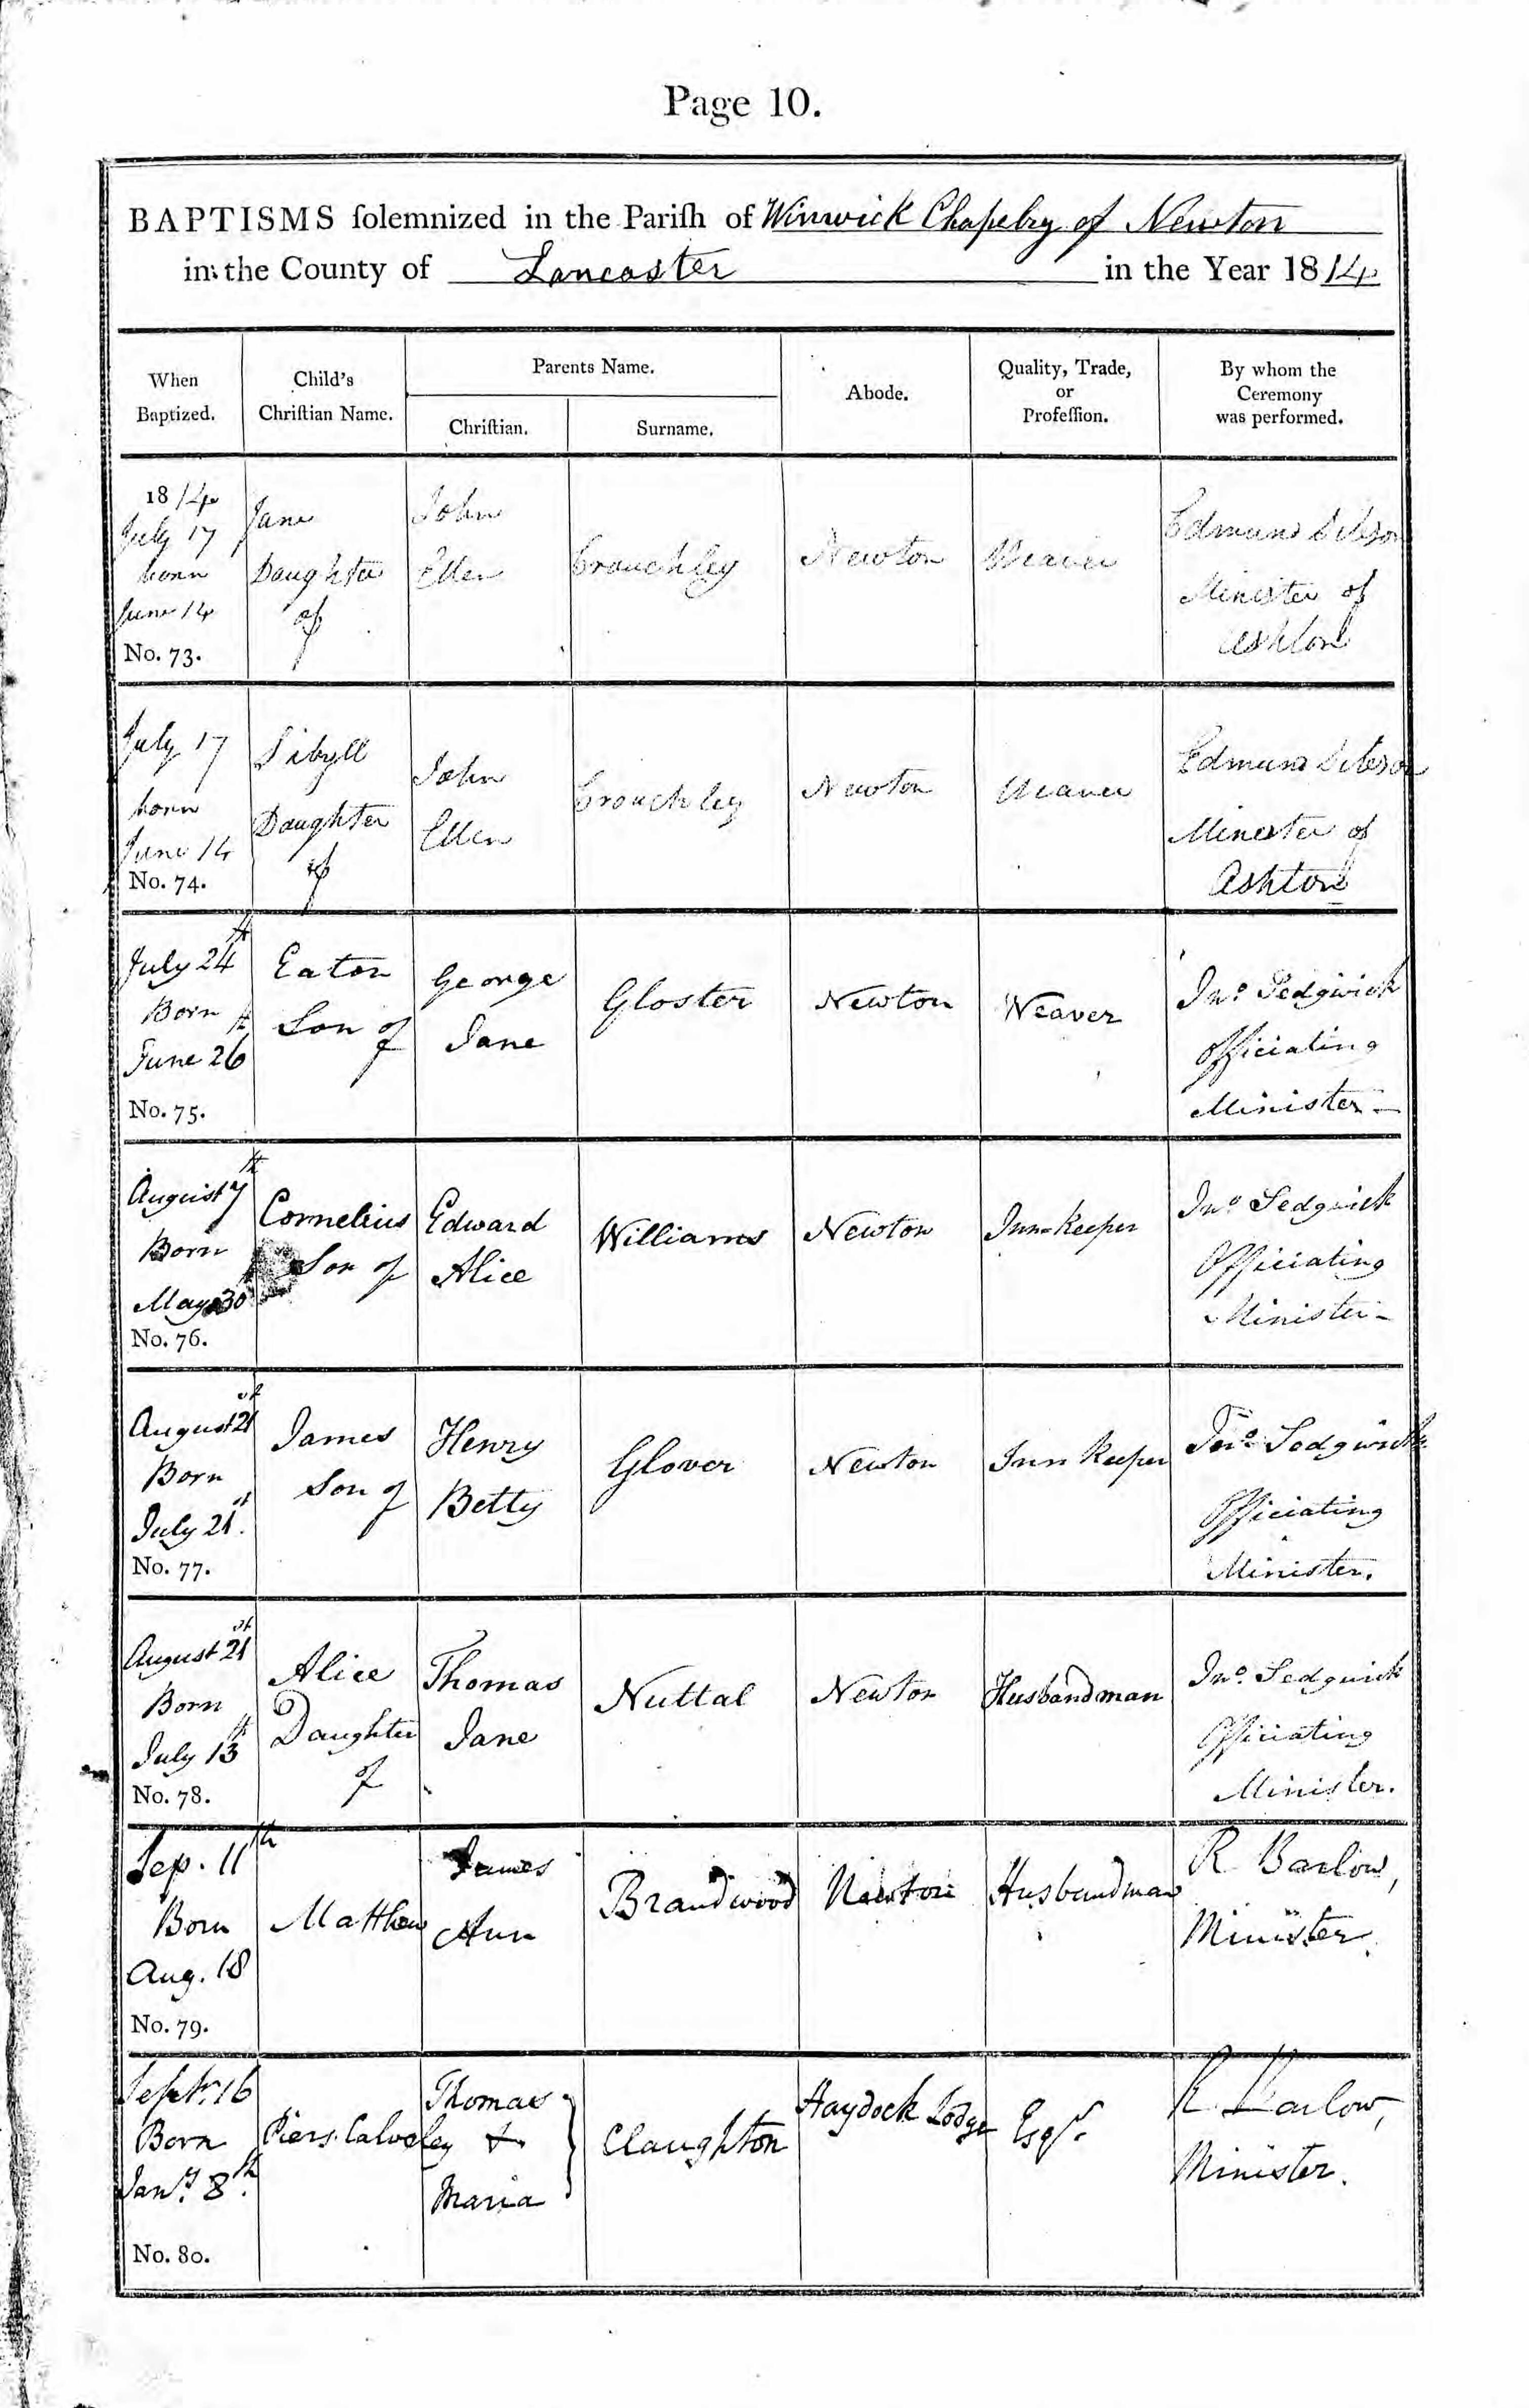 Page 10.
BAPTISMS ſolemnized in the Pariſh of Winwick Chapelry of Newton
in the County of Lancaster in the Year 1814
When Baptized.
Child's Chriſtian Name.
Parents Name.
Chriſtian.
Surname.
Abode.
Quality, Trade, or Profeſſion.
By whom the Ceremony was performed.
1814
July 17
born
June 14
No. 73.
Jane
Daughter
of
John
Ellen
Crouchley
Newton
Weaver
Edmund Sibson
Minister of
Ashton
July 17
born
June 14
No. 74.
Sibyll
Daughter
of
John
Ellen
Crouchley
Newton
Weaver
Edmund Sibson
Minister of
Ashton
July 24th
Born
June 26th
No. 75.
Eaton
Son of
George
Jane
Gloster
Newton
Weaver
Jno. Sedgwick
Officiating
Minister
August 7th
Born
May 30th
No. 76.
Cornelius
Son of
Edward
Alice
Williams
Newton
Inn-keeper
Jno. Sedgwick
Officiating
Minister
August 21st
Born
July 21st.
No. 77.
James
Son of
Henry
Betty
Glover
Newton
Inn keeper
Jno. Sedgwick
Officiating
Minister.
August 21st
Born
July 13th
No. 78.
Alice
Daughter
of
Thomas
Jane
Nuttal
Newton
Husbandman
Jno. Sedgwick
Officiating
Minister.
Sep. 11th
Born
Aug. 18
No. 79.
Matthew
James
Ann
Brandwood
Newton
Husbandman
R Barlow,
Minister.
Septr. 16
Born
Jany. 8th.
No. 80.
Piers Calveley
Thomas
&
Maria
Claughton
Haydock Lodge
Esqr.
R. Barlow,
Minister.